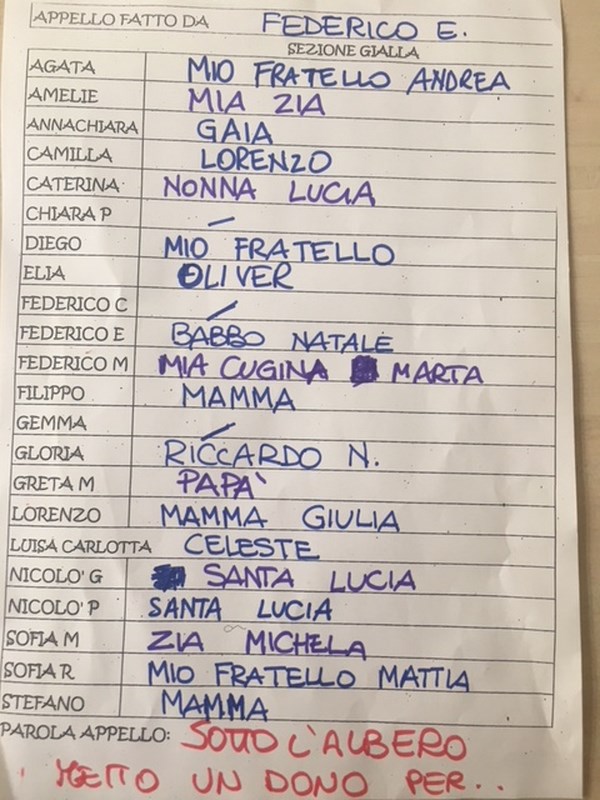 APPELLO FATTO DA FEDERICO E.
SEZIONE GIALLA
AGATA MIO FRATELLO ANDREA
AMELIE MIA ZIA
ANNACHIARA GAIA
CAMILLA LORENZO
CATERINA NONNA LUCIA
CHIARA P –
DIEGO MIO FRATELLO
ELIA OLIVER
FEDERICO C –
FEDERICO E BABBO NATALE
FEDERICO M MIA CUGINA MARTA
FILIPPO MAMMA
GEMMA –
GLORIA RICCARDO N.
GRETA M PAPA'
LORENZO MAMMA GIULIA
LUISA CARLOTTA CELESTE
NICOLO' G SANTA LUCIA
NICOLO' P SANTA LUCIA
SOFIA M ZIA MICHELA
SOFIA R MIO FRATELLO MATTIA
STEFANO MAMMA
PAROLA APPELLO: SOTTO L'ALBERO
METTO UN DONO PER..